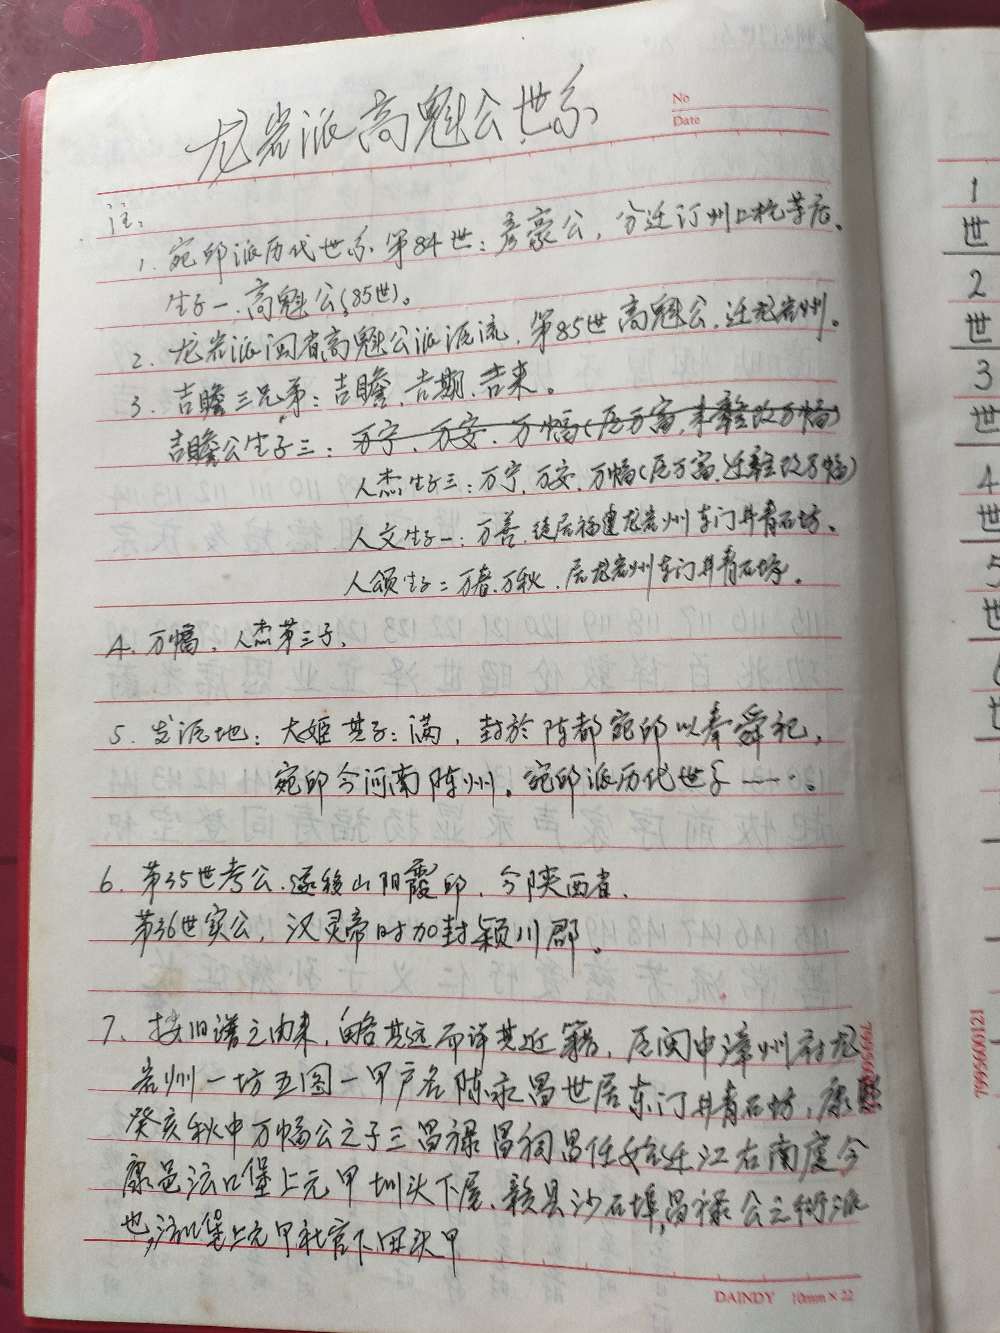 No
Date
龙岩派高魁公世系
注:
1. 宛邱派历代世系第84世:彦豪公,分迁汀州上杭茅店。
生子一.高魁公(85世)。
2. 龙岩派闽省高魁公派派流,第85世高魁公.迁龙岩州。
3. 吉瞻三兄弟:吉瞻.吉期.吉来。
吉瞻公生子三:万宁.万安.万幅(居万富,来赣改万幅)
人杰生子三:万宁.万安.万幅(居万富.迁赣改万幅)
人文生子一:万善.徒居福建龙岩州东门井青石坊.
人颂生子二万春.万秋.居龙岩州东门井青石坊.
4. 万幅,人杰第三子,
5. 发派地:大姬其子:满,封於陈都宛邱以奉舜祀,
宛邱今河南陈州。宛邱派历代世系……。
6. 第35世考公.逐移山阳霞邱.今陕西省.
第36世实公,汉灵帝时加封颖川郡。
7. 按旧谱之由来,略其远而详其近籍,居闽中漳州府龙
岩州一坊五图一甲户名陈永昌世居东门井青石坊,康熙
癸亥秋中万幅公之子三昌禄昌祠昌任始迁江右南度今
康邑浤口堡上元甲圳头下屋、赣县沙石埠,昌禄公之衍派
也,浤口堡上元甲社官下田头甲
1
世
2
世
3
世
4
世
5
世
6
世
DAINDY 10mm×22